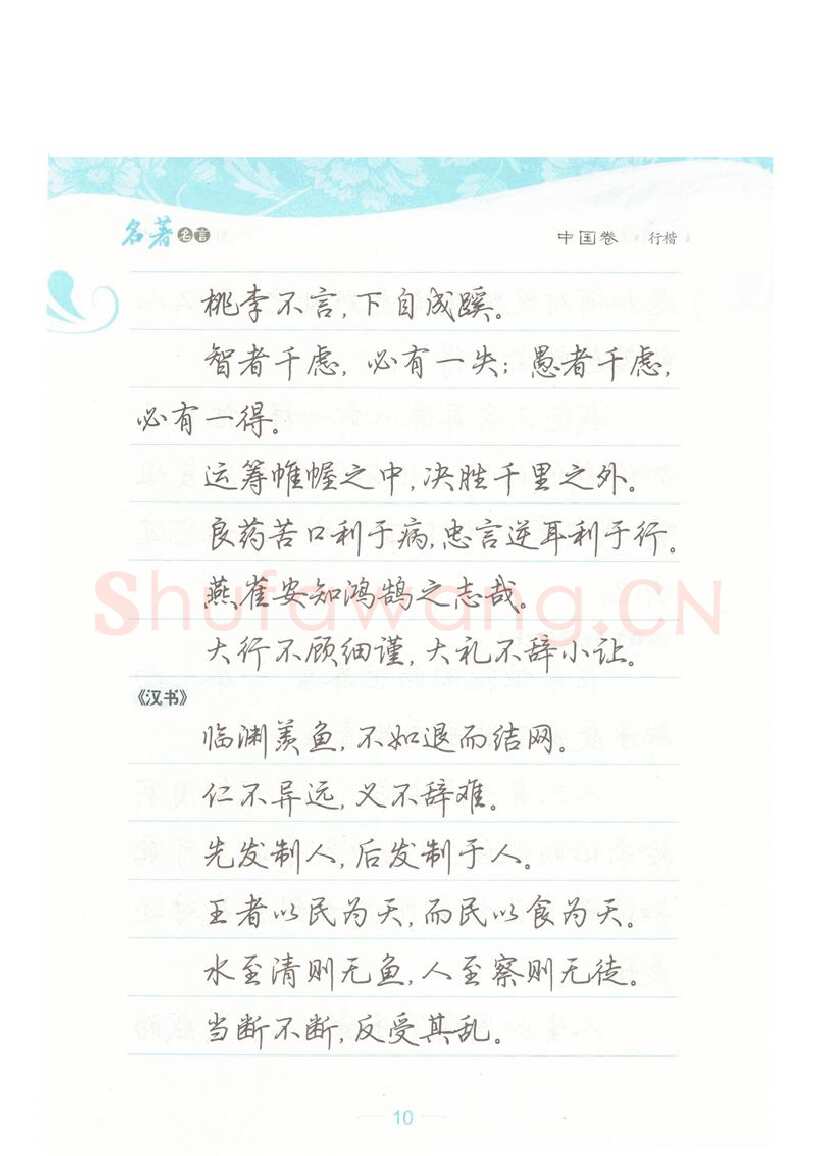 名著名言
中国卷 行楷
桃李不言，下自成蹊。
智者千虑，必有一失；愚者千虑，
必有一得。
运筹帷幄之中，决胜千里之外。
良药苦口利于病，忠言逆耳利于行。
燕雀安知鸿鹄之志哉。
Shufawang.CN
大行不顾细谨，大礼不辞小让。
《汉书》
临渊羡鱼，不如退而结网。
仁不异远，义不辞难。
先发制人，后发制于人。
王者以民为天，而民以食为天。
水至清则无鱼，人至察则无徒。
当断不断，反受其乱。
10